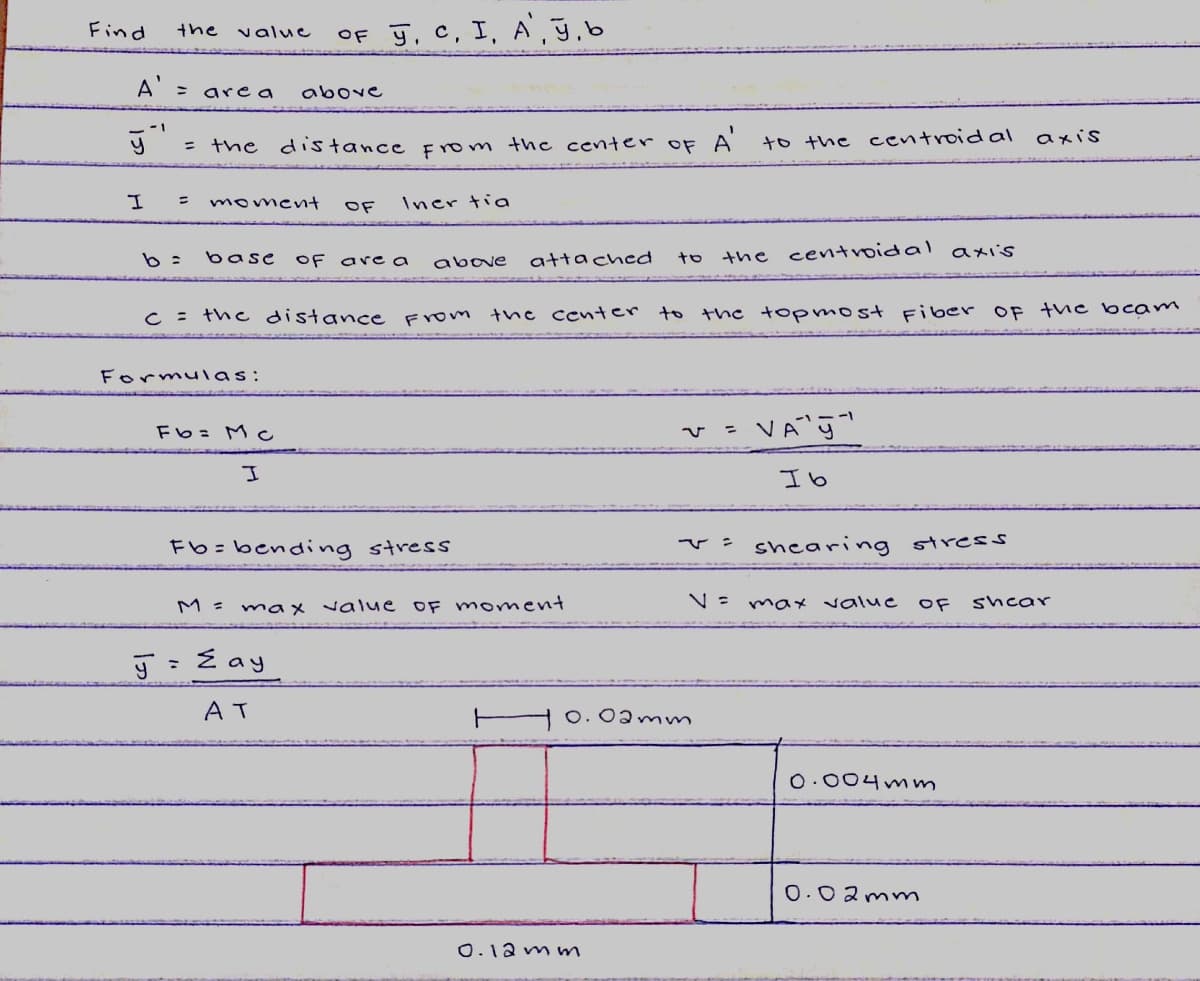 Find the value OF ȳ, c, I, A', ȳ, b
A' = area above
ȳ⁻¹ = the distance from the center OF A' to the centroidal axis
I = moment OF Inertia
b = base OF area above attached to the centroidal axis
c = the distance From the center to the topmost Fiber OF the beam
Formulas:
Fb = Mc
I
v = VA⁻¹ȳ⁻¹
Ib
Fb = bending stress
v = shearing stress
M = max value OF moment
V = max value OF shear
ȳ = Σay
AT
0.02mm
0.004mm
0.02mm
0.12mm